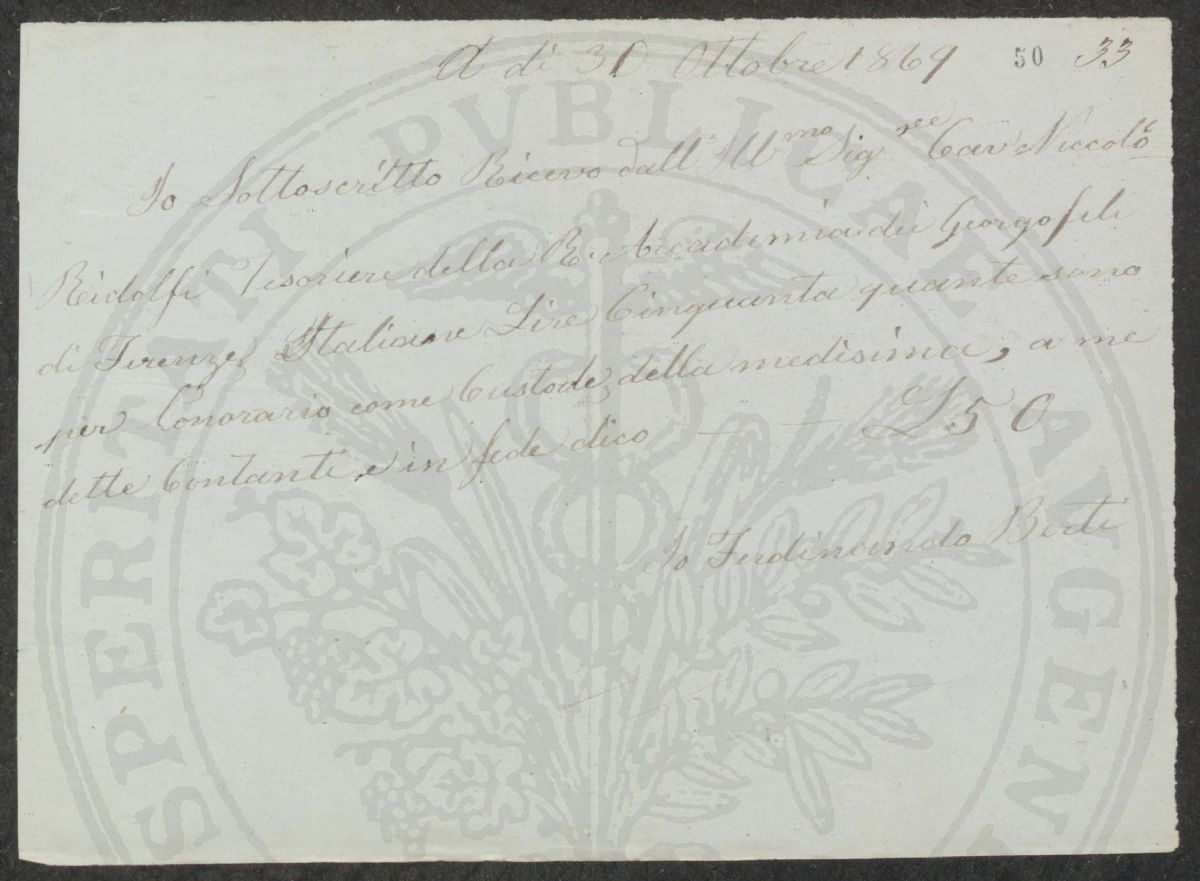 A di 31 Ottobre 1869 50 33
Io Sottoscritto Ricevo dall' Ill.mo Sig.re Cav Niccolò
Ridolfi Tesoriere della R. Accademia dei Georgofili
di Firenze Italiane Lire Cinquanta quante sono
per l'onorario come Custode, della medisima, a me
dette Contanti e in fede dico — — — L 50
Io Ferdinando Berti
PROSPERITATI PVBLICAE AVGENDAE